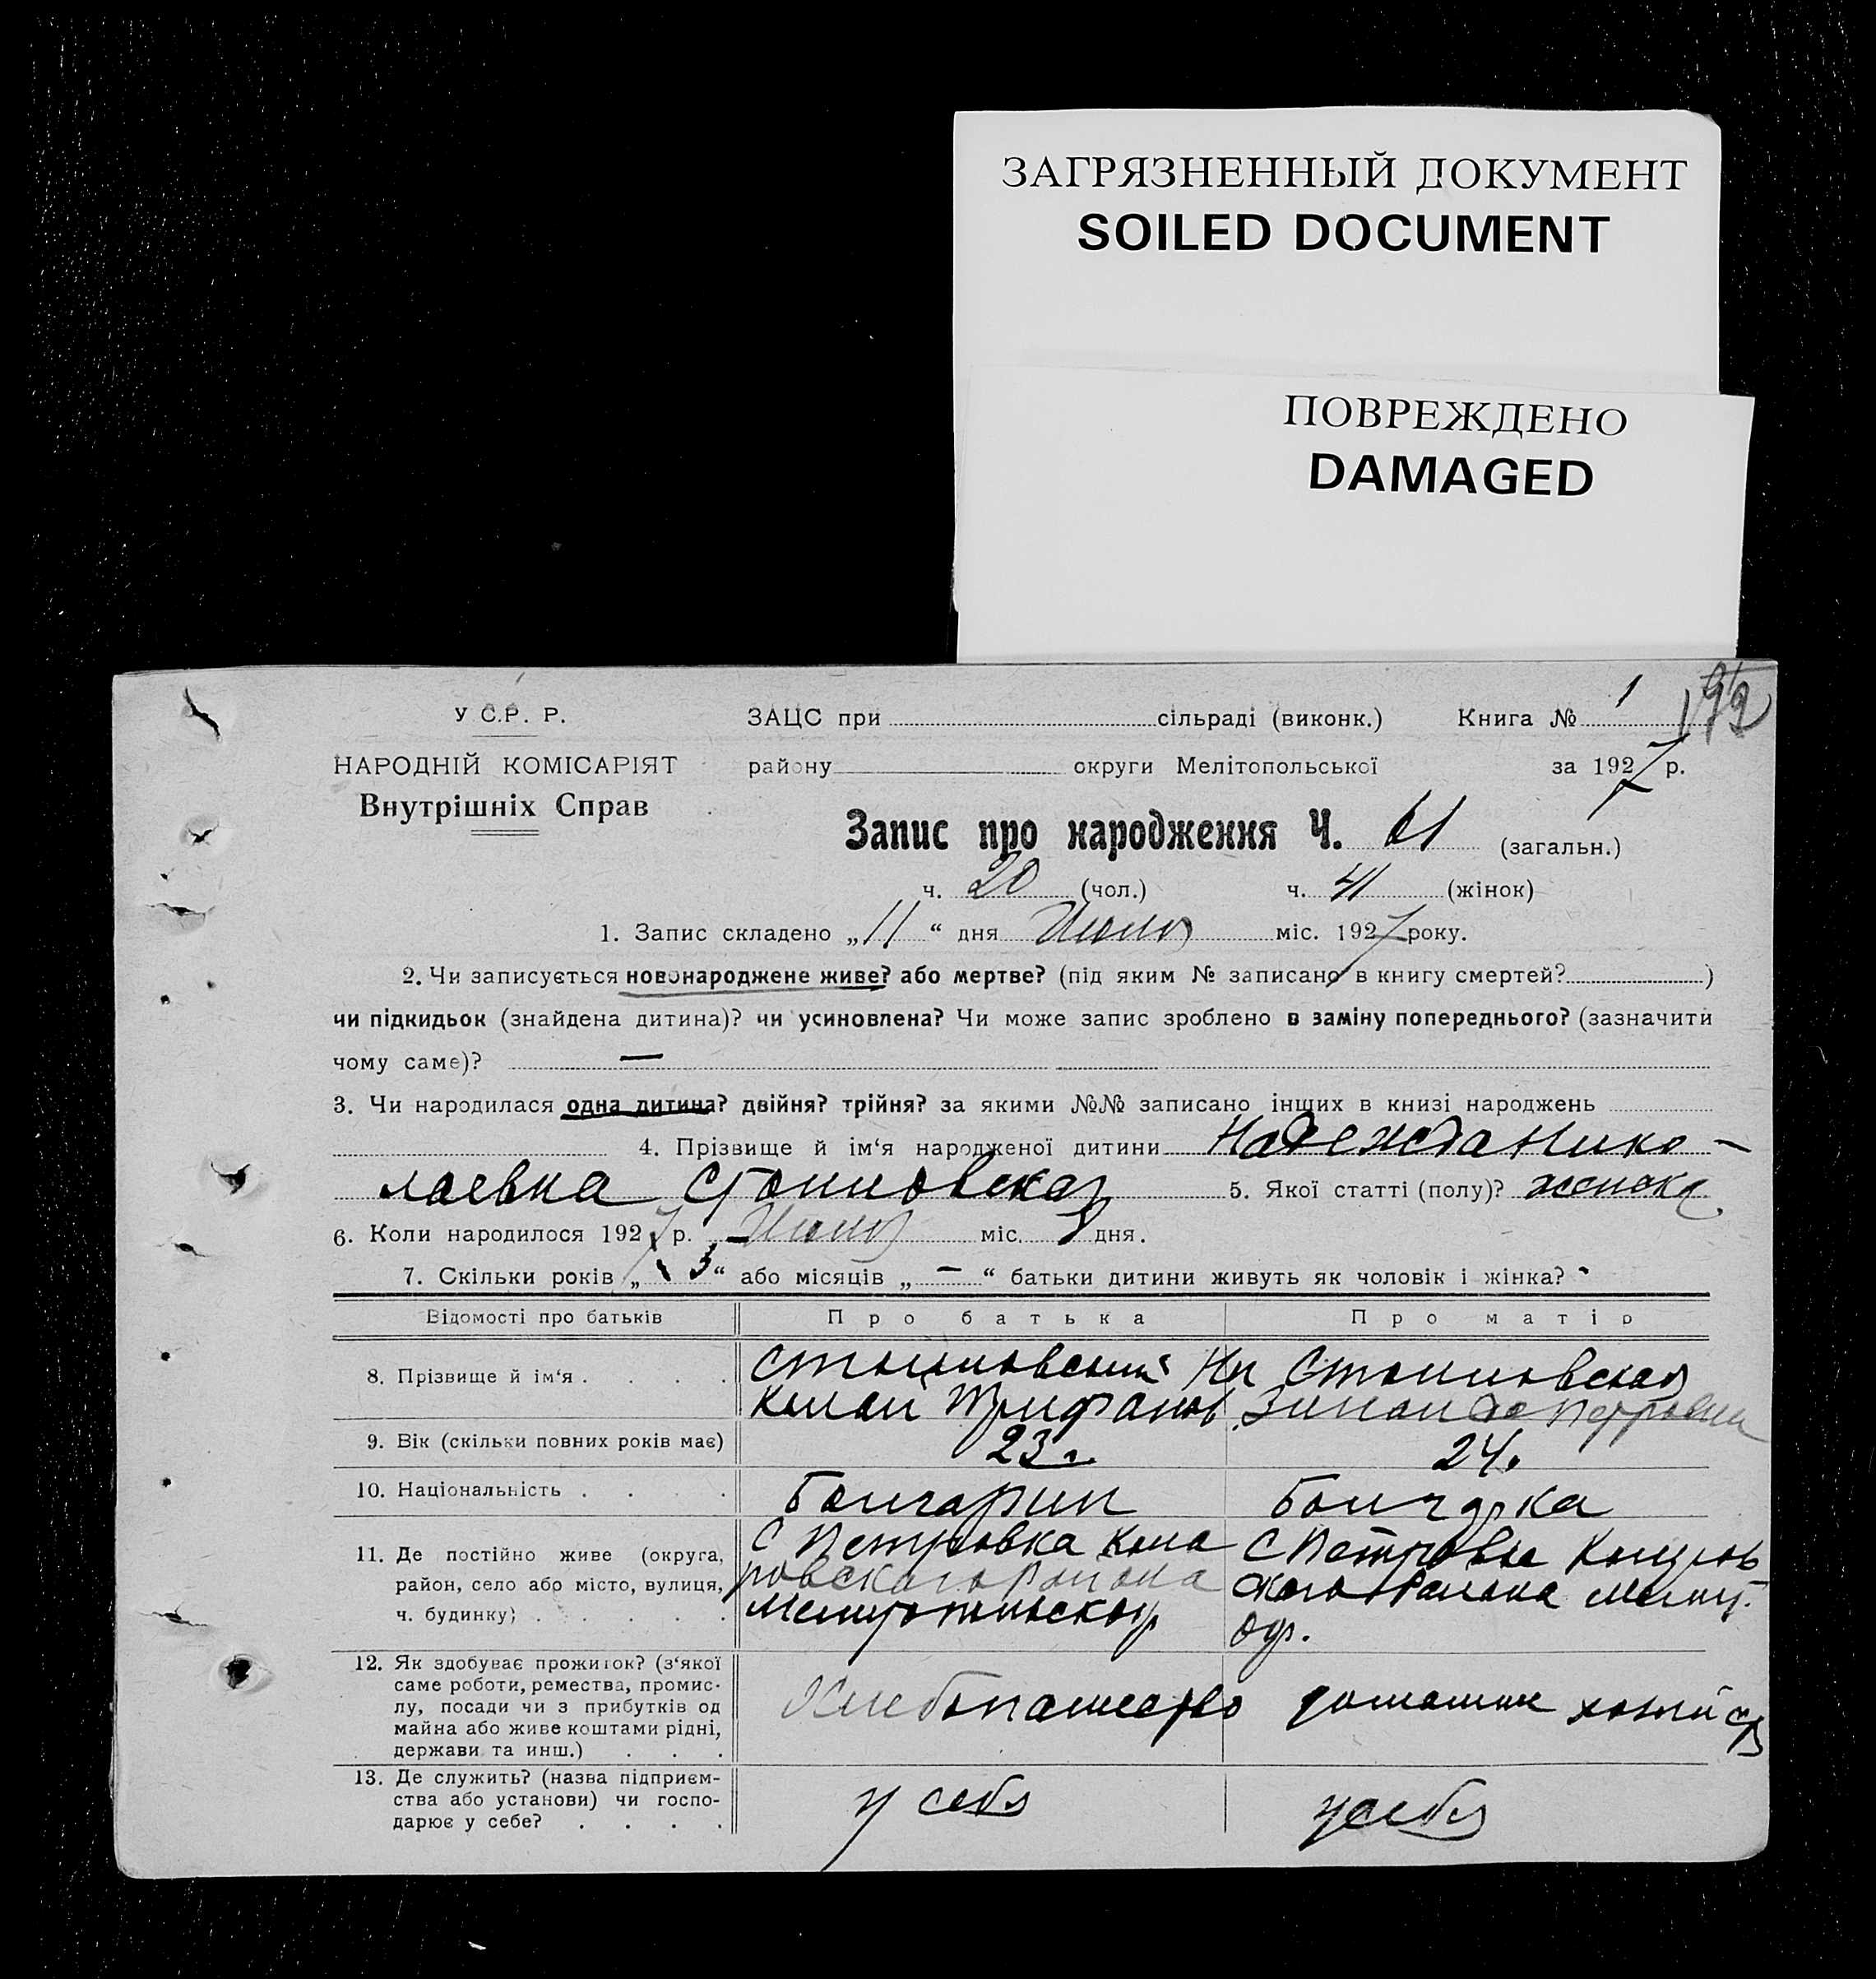 ЗАГРЯЗНЕННЫЙ ДОКУМЕНТ
SOILED DOCUMENT
ПОВРЕЖДЕНО
DAMAGED
У С.Р. Р. ЗАЦС при сільраді (виконк.) Книга № 1
НАРОДНІЙ КОМІСАРІЯТ району округи Мелітопольської за 1927 р.
Внутрішніх Справ
Запис про народження Ч. 61 (загальн.)
ч. 20 (чол.) ч. 41 (жінок)
1. Запис складено „11“ дня Июля міс. 1927 року.
2. Чи записується новонароджене живе? або мертве? (під яким № записано в книгу смертей? )
чи підкидьок (знайдена дитина)? чи усиновлена? Чи може запис зроблено в заміну попереднього? (зазначити
чому саме)? —
3. Чи народилася одна дитина? двійня? трійня? за якими №№ записано інших в книзі народжень
4. Прізвище й ім‘я народженої дитини Надежда Нико-
лаевна Стоиловская 5. Якої статті (полу)? женска
6. Коли народилося 1927 р. Июля міс. дня.
7. Скільки років „3“ або місяців „—“ батьки дитини живуть як чоловік і жінка?
Відомості про батьків Про батька Про матір
8. Прізвище й ім‘я . . . . Стоиловский Ни Стоиловская
колай Трифанов Зинаида Петровна
9. Вік (скільки повних років має) 23 г. 24.
10. Національність . . . . Болгарин Болгарка
11. Де постійно живе (округа, С Петровка Кола С Петровка Коларов
район, село або місто, вулиця, ровского Района ского Района Мелит.
ч. будинку) . . . . . Мелитопольской окр.
12. Як здобуває прожиток? (з‘якої
саме роботи, ремества, промис-
лу, посади чи з прибутків од Хлебопашество домашн хозяйст
майна або живе коштами рідні,
держави та инш.) . . .
13. Де служить? (назва підприєм-
ства або установи) чи госпо- у себя у себя
дарює у себе? . . . .